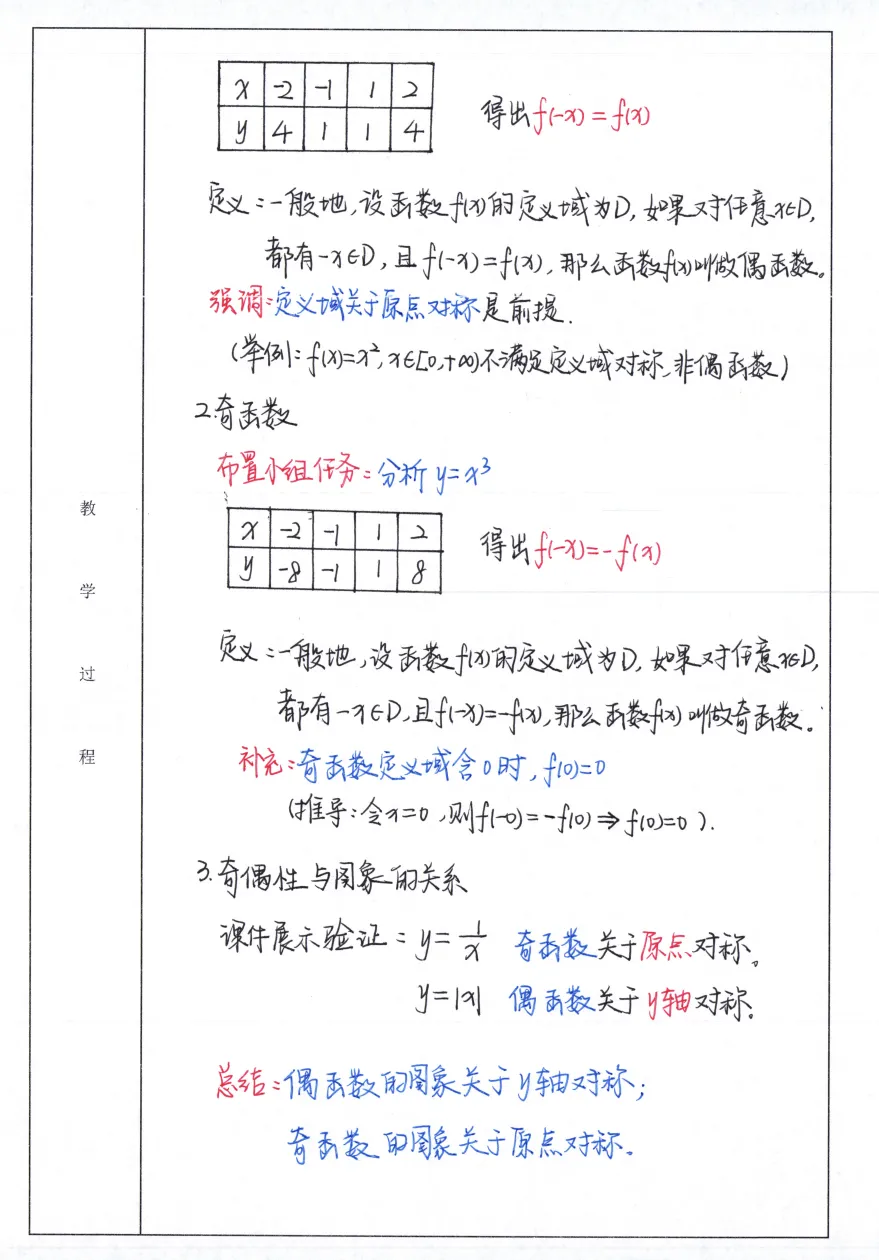 x -2 -1 1 2
y 4 1 1 4
得出f(-x)=f(x)
定义:一般地,设函数f(x)的定义域为D,如果对任意x∈D,
都有-x∈D,且f(-x)=f(x),那么函数f(x)叫做偶函数。
强调:定义域关于原点对称是前提.
(举例:f(x)=x²,x∈[0,+∞)不满足定义域对称,非偶函数)
2.奇函数
布置小组任务:分析y=x³
x -2 -1 1 2
y -8 -1 1 8
得出f(-x)=-f(x)
定义:一般地,设函数f(x)的定义域为D,如果对任意x∈D,
都有-x∈D,且f(-x)=-f(x),那么函数f(x)叫做奇函数。
补充:奇函数定义域含0时,f(0)=0
(推导:令x=0,则f(-0)=-f(0)⇒f(0)=0).
3.奇偶性与图象的关系
课件展示验证:y=1/x 奇函数关于原点对称。
y=|x| 偶函数关于y轴对称.
总结:偶函数的图象关于y轴对称;
奇函数的图象关于原点对称.
教
学
过
程